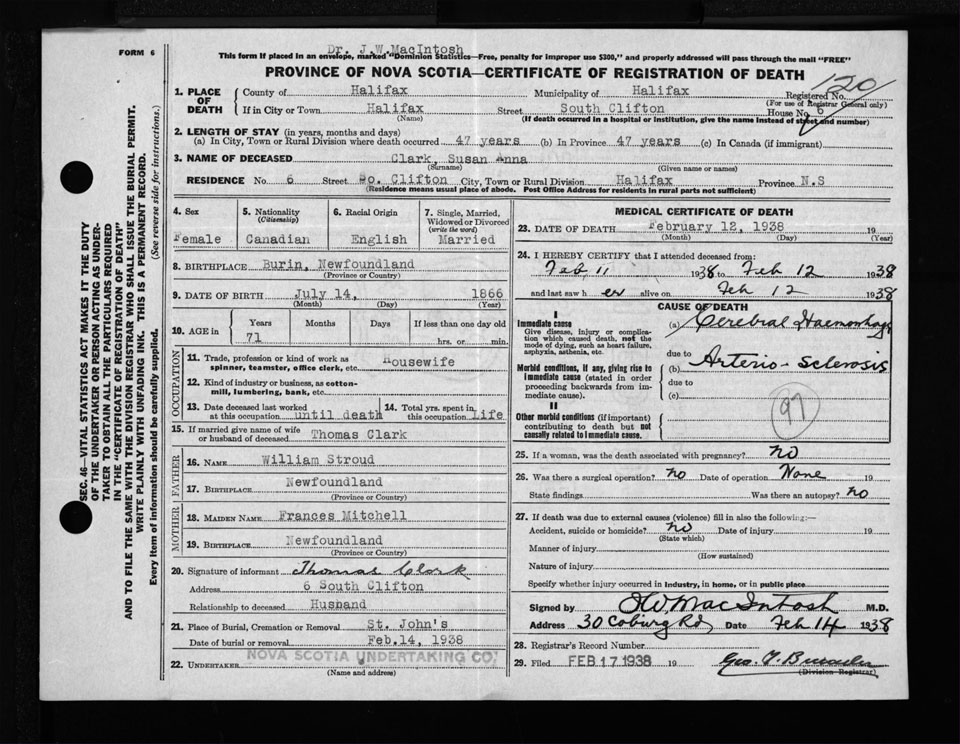 FORM 6
Dr. J.W.MacIntosh
This form if placed in an envelope, marked "Dominion Statistics—Free, penalty for improper use $300," and properly addressed will pass through the mail "FREE"
PROVINCE OF NOVA SCOTIA—CERTIFICATE OF REGISTRATION OF DEATH
120
1. PLACE OF DEATH
County of Halifax Municipality of Halifax Registered No.
(For use of Registrar General only)
If in City or Town Halifax Street South Clifton House No. 6
(Name) (If death occurred in a hospital or institution, give the name instead of street and number)
2. LENGTH OF STAY (in years, months and days)
(a) In City, Town or Rural Division where death occurred 47 years (b) In Province 47 years (c) In Canada (if immigrant)
3. NAME OF DECEASED Clark, Susan Anna
(Surname) (Given name or names)
RESIDENCE No. 6 Street So. Clifton City, Town or Rural Division Halifax Province N.S
(Residence means usual place of abode. Post Office Address for residents in rural parts not sufficient)
4. Sex
Female
5. Nationality
(Citizenship)
Canadian
6. Racial Origin
English
7. Single, Married, Widowed or Divorced
(write the word)
Married
8. BIRTHPLACE Burin, Newfoundland
(Province or Country)
9. DATE OF BIRTH July 14, 1866
(Month) (Day) (Year)
10. AGE in
Years Months Days If less than one day old
71 hrs. or min.
OCCUPATION
11. Trade, profession or kind of work as Housewife
spinner, teamster, office clerk, etc.
12. Kind of industry or business, as cotton-
mill, lumbering, bank, etc.
13. Date deceased last worked
at this occupation until death
14. Total yrs. spent in
this occupation Life
15. If married give name of wife
or husband of deceased Thomas Clark
FATHER
16. NAME William Stroud
17. BIRTHPLACE Newfoundland
(Province or Country)
MOTHER
18. MAIDEN NAME Frances Mitchell
19. BIRTHPLACE Newfoundland
(Province or Country)
20. Signature of informant Thomas Clark
Address 6 South Clifton
Relationship to deceased Husband
21. Place of Burial, Cremation or Removal St. John's
Date of burial or removal Feb.14, 1938
22. UNDERTAKER NOVA SCOTIA UNDERTAKING CO.
(Name and address)
MEDICAL CERTIFICATE OF DEATH
23. DATE OF DEATH February 12, 1938 19
(Month) (Day) (Year)
24. I HEREBY CERTIFY that I attended deceased from:
Feb 11 1938 to Feb 12 1938
and last saw h er alive on Feb 12 1938
CAUSE OF DEATH
I
Immediate cause
Give disease, injury or complica-
tion which caused death, not the
mode of dying, such as heart failure,
asphyxia, asthenia, etc.
(a) Cerebral Haemorrhage
due to
Morbid conditions, if any, giving rise to
immediate cause (stated in order
proceeding backwards from im-
mediate cause).
(b) Arterio-sclerosis
due to
(c)
97
II
Other morbid conditions (if important)
contributing to death but not
causally related to immediate cause.
25. If a woman, was the death associated with pregnancy? no
26. Was there a surgical operation? no Date of operation None
State findings Was there an autopsy? no
27. If death was due to external causes (violence) fill in also the following:—
Accident, suicide or homicide? no Date of injury 19
(State which)
Manner of injury
(How sustained)
Nature of injury
Specify whether injury occurred in industry, in home, or in public place
Signed by JW MacIntosh M.D.
Address 30 Coburg Rd Date Feb 14 1938
28. Registrar's Record Number
29. Filed FEB 17 1938 19
(Division Registrar)
SEC. 46—VITAL STATISTICS ACT MAKES IT THE DUTY
OF THE UNDERTAKER OR PERSON ACTING AS UNDER-
TAKER TO OBTAIN ALL THE PARTICULARS REQUIRED
IN THE "CERTIFICATE OF REGISTRATION OF DEATH"
AND TO FILE THE SAME WITH THE DIVISION REGISTRAR WHO SHALL ISSUE THE BURIAL PERMIT.
WRITE PLAINLY WITH UNFADING INK. THIS IS A PERMANENT RECORD.
Every item of information should be carefully supplied. (See reverse side for instructions.)